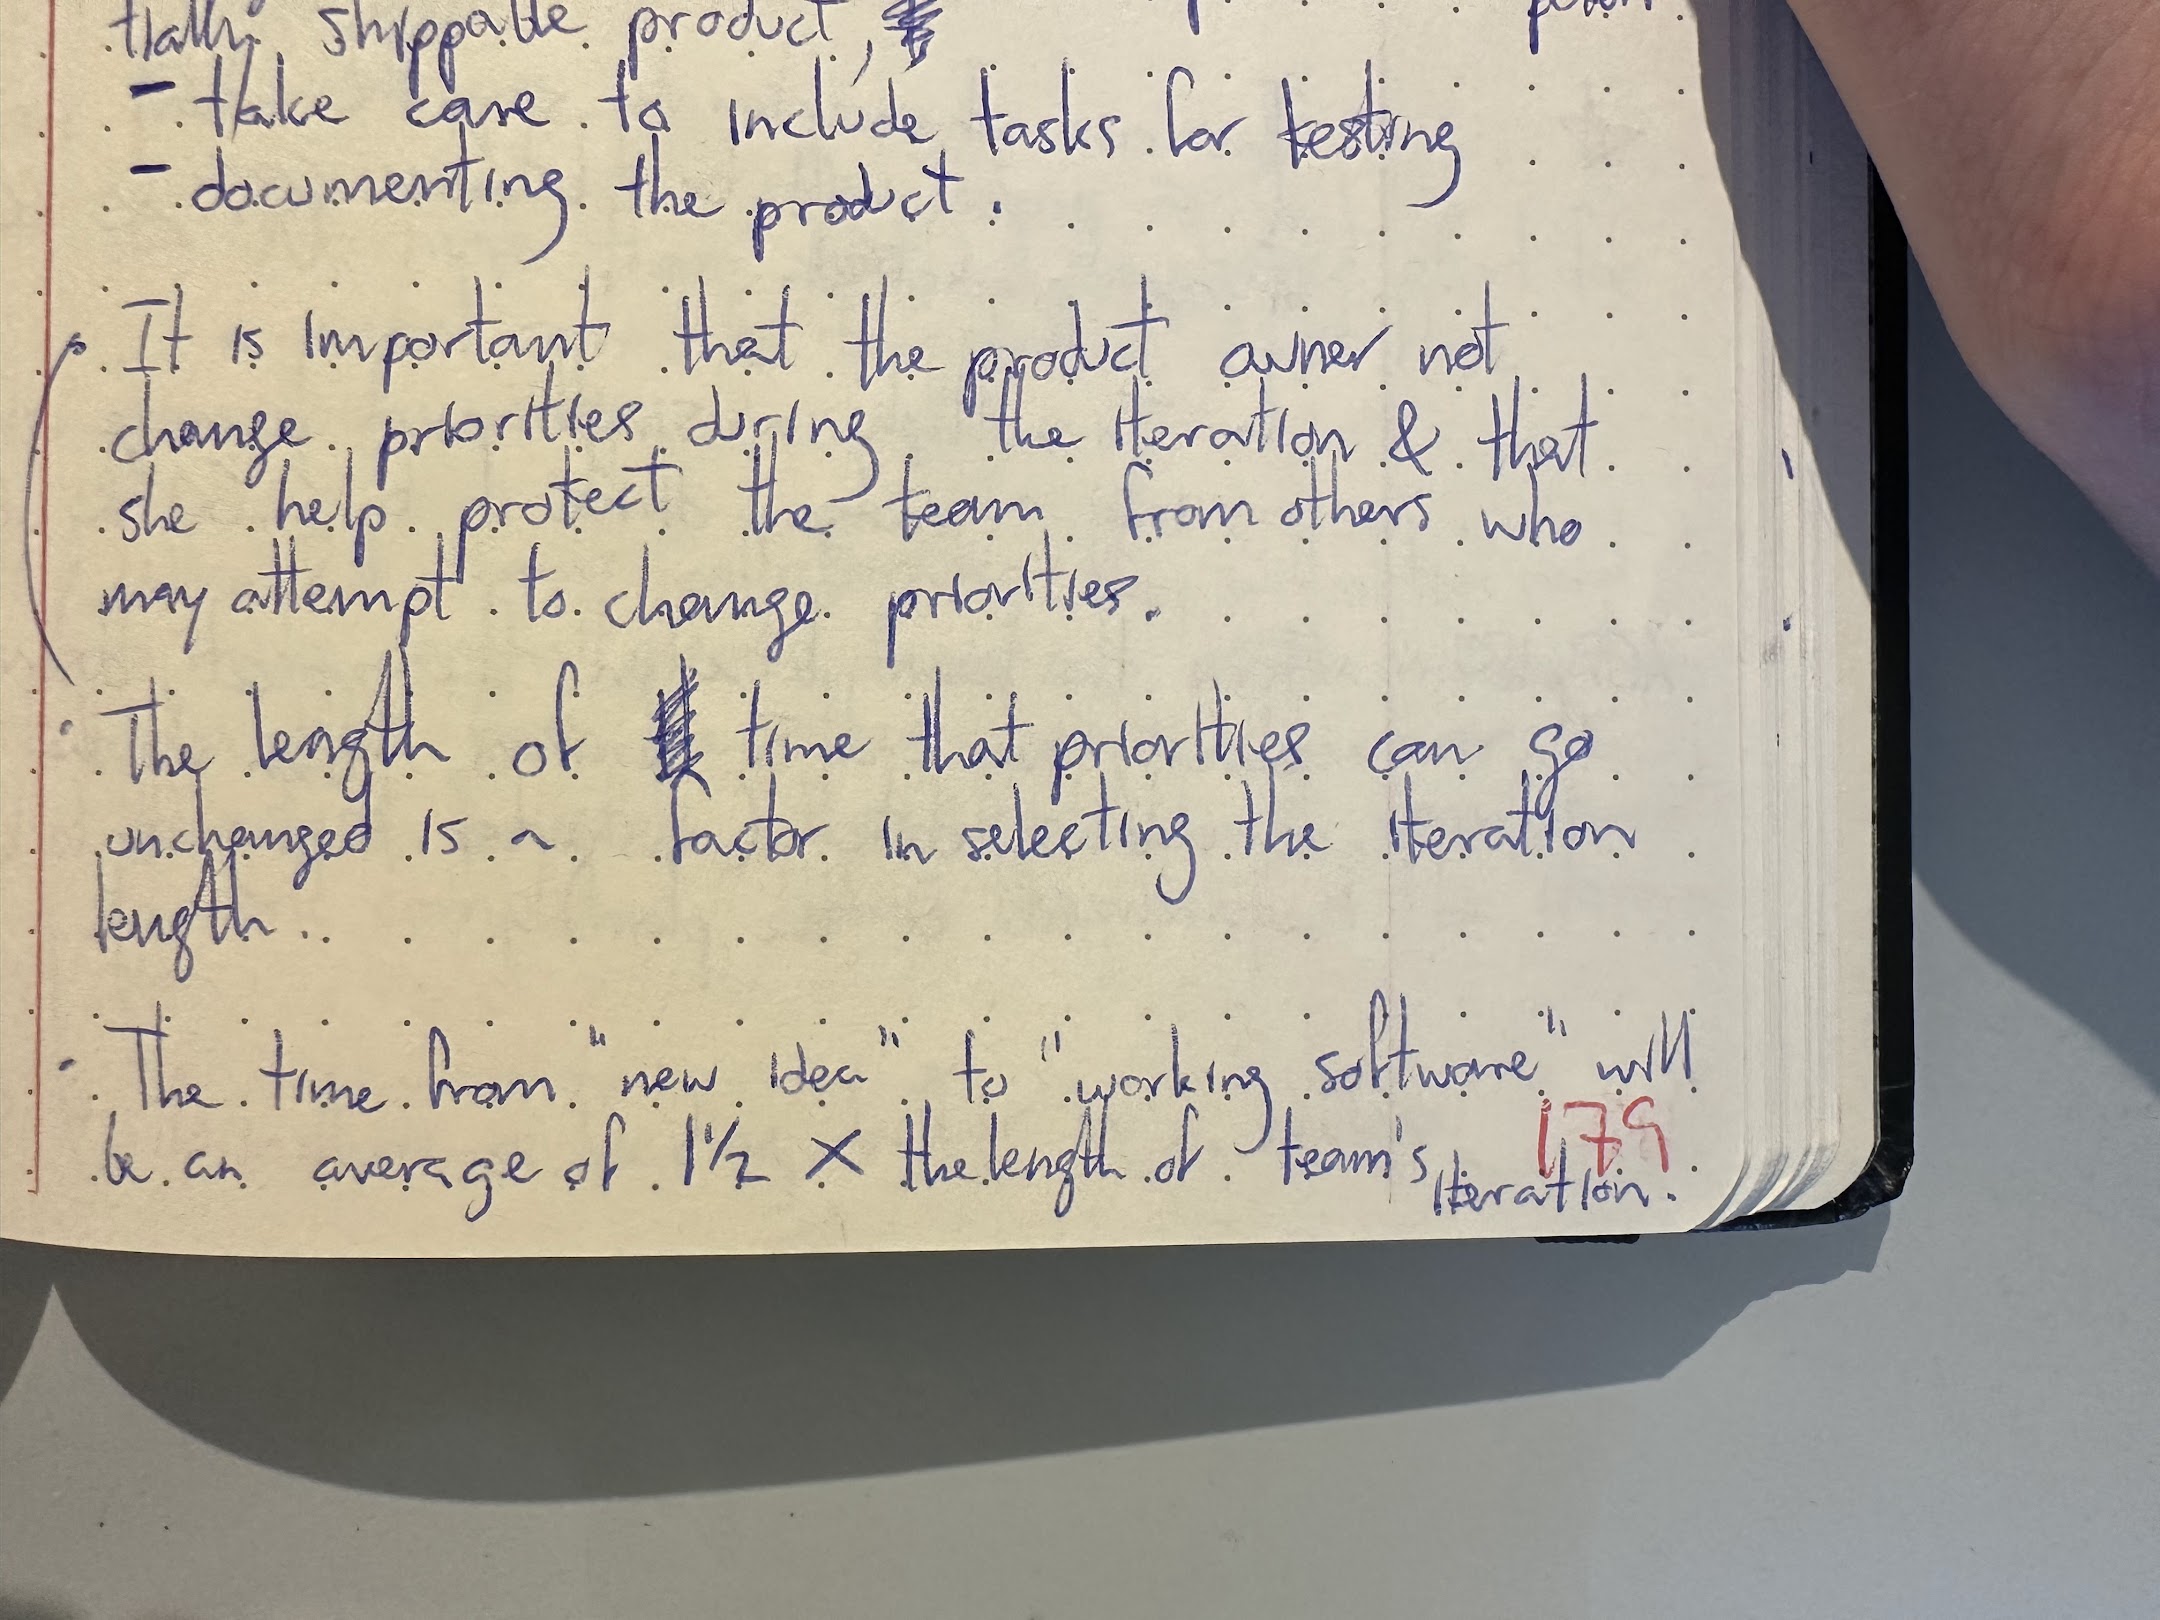 tially shippable product,
- take care to include tasks for testing
- documenting the product.
It is important that the product owner not
change priorities during the iteration & that
she help protect the team from others who
may attempt to change priorities.
· The length of time that priorities can go
unchanged is a factor in selecting the iteration
length.
· The time from "new idea" to "working software" will
be an average of 1 1/2 × the length of team's
iteration.
179